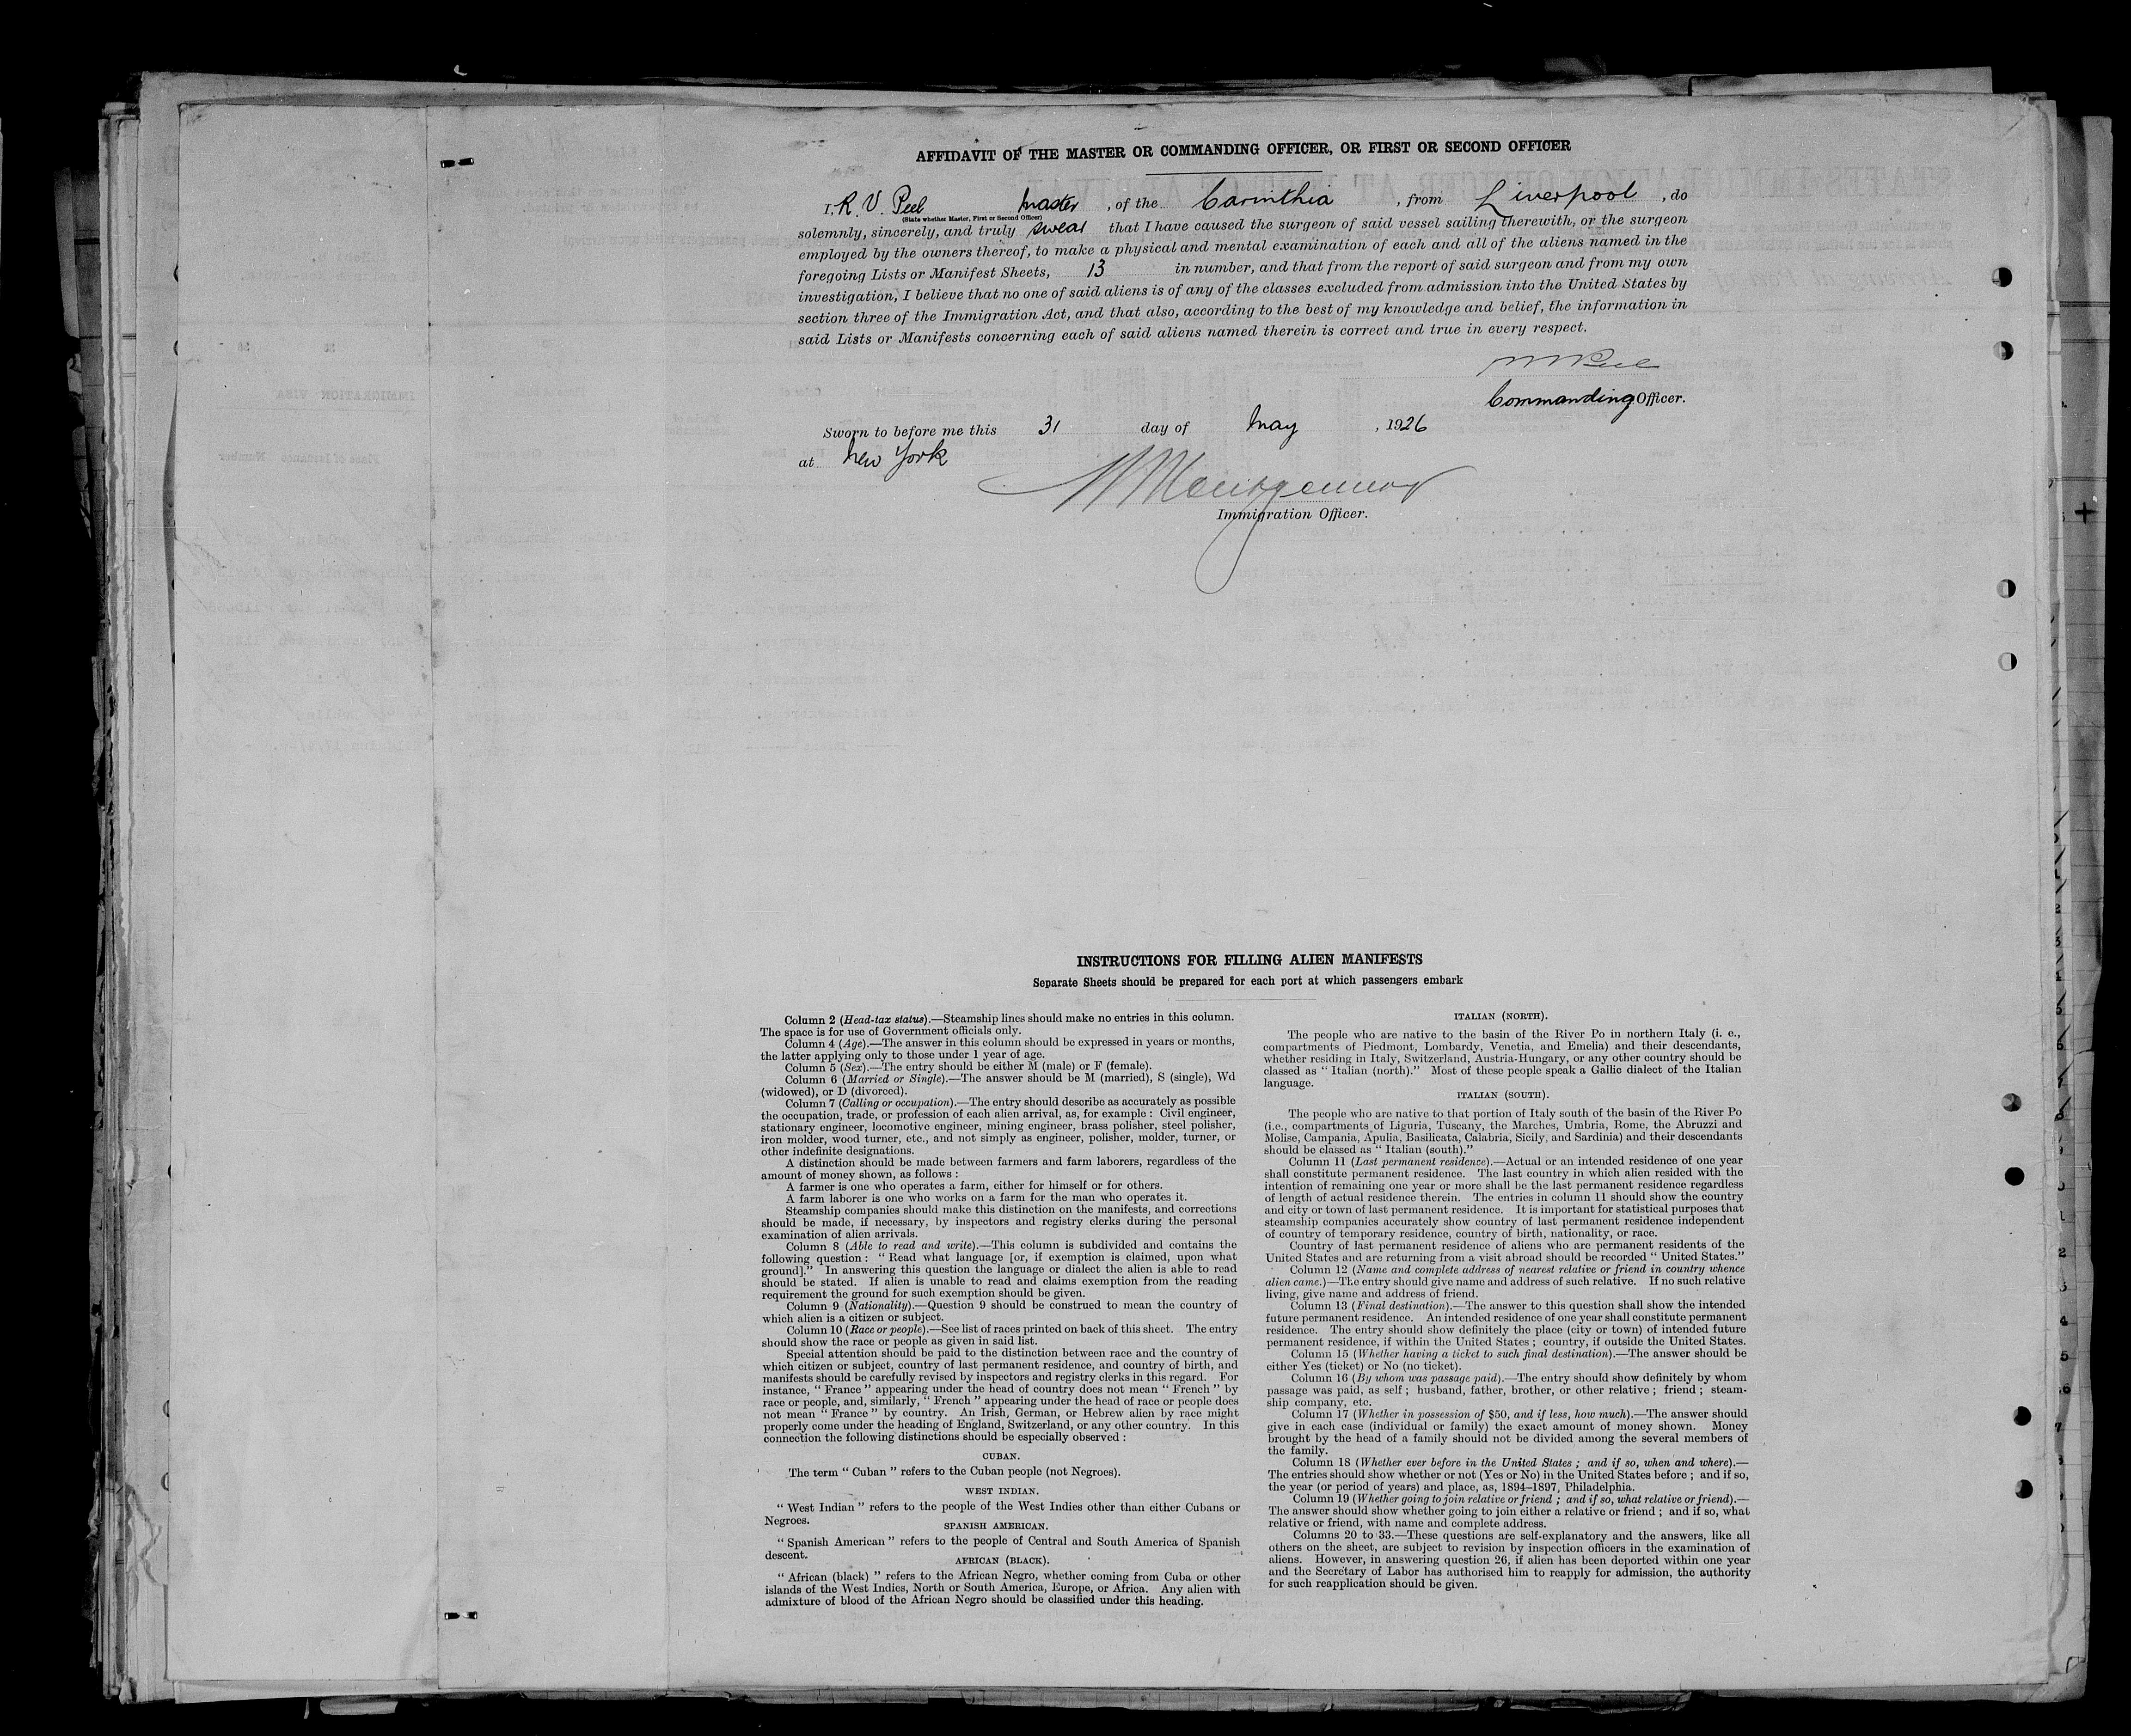 AFFIDAVIT OF THE MASTER OR COMMANDING OFFICER, OR FIRST OR SECOND OFFICER
I, R. V. Peel Master, of the Carinthia, from Liverpool, do
(State whether Master, First or Second Officer)
solemnly, sincerely, and truly swear that I have caused the surgeon of said vessel sailing therewith, or the surgeon
employed by the owners thereof, to make a physical and mental examination of each and all of the aliens named in the
foregoing Lists or Manifest Sheets, 13 in number, and that from the report of said surgeon and from my own
investigation, I believe that no one of said aliens is of any of the classes excluded from admission into the United States by
section three of the Immigration Act, and that also, according to the best of my knowledge and belief, the information in
said Lists or Manifests concerning each of said aliens named therein is correct and true in every respect.
Commanding Officer.
Sworn to before me this 31 day of May, 1926
at New York
Immigration Officer.
INSTRUCTIONS FOR FILLING ALIEN MANIFESTS
Separate Sheets should be prepared for each port at which passengers embark
Column 2 (Head-tax status).—Steamship lines should make no entries in this column.
The space is for use of Government officials only.
Column 4 (Age).—The answer in this column should be expressed in years or months,
the latter applying only to those under 1 year of age.
Column 5 (Sex).—The entry should be either M (male) or F (female).
Column 6 (Married or Single).—The answer should be M (married), S (single), Wd
(widowed), or D (divorced).
Column 7 (Calling or occupation).—The entry should describe as accurately as possible
the occupation, trade, or profession of each alien arrival, as, for example : Civil engineer,
stationary engineer, locomotive engineer, mining engineer, brass polisher, steel polisher,
iron molder, wood turner, etc., and not simply as engineer, polisher, molder, turner, or
other indefinite designations.
A distinction should be made between farmers and farm laborers, regardless of the
amount of money shown, as follows :
A farmer is one who operates a farm, either for himself or for others.
A farm laborer is one who works on a farm for the man who operates it.
Steamship companies should make this distinction on the manifests, and corrections
should be made, if necessary, by inspectors and registry clerks during the personal
examination of alien arrivals.
Column 8 (Able to read and write).—This column is subdivided and contains the
following question : “ Read what language [or, if exemption is claimed, upon what
ground].” In answering this question the language or dialect the alien is able to read
should be stated. If alien is unable to read and claims exemption from the reading
requirement the ground for such exemption should be given.
Column 9 (Nationality).—Question 9 should be construed to mean the country of
which alien is a citizen or subject.
Column 10 (Race or people).—See list of races printed on back of this sheet. The entry
should show the race or people as given in said list.
Special attention should be paid to the distinction between race and the country of
which citizen or subject, country of last permanent residence, and country of birth, and
manifests should be carefully revised by inspectors and registry clerks in this regard. For
instance, “ France ” appearing under the head of country does not mean “ French ” by
race or people, and, similarly, “ French ” appearing under the head of race or people does
not mean “ France ” by country. An Irish, German, or Hebrew alien by race might
properly come under the heading of England, Switzerland, or any other country. In this
connection the following distinctions should be especially observed :
CUBAN.
The term “ Cuban ” refers to the Cuban people (not Negroes).
WEST INDIAN.
“ West Indian ” refers to the people of the West Indies other than either Cubans or
Negroes.
SPANISH AMERICAN.
“ Spanish American ” refers to the people of Central and South America of Spanish
descent.
AFRICAN (BLACK).
“ African (black) ” refers to the African Negro, whether coming from Cuba or other
islands of the West Indies, North or South America, Europe, or Africa. Any alien with
admixture of blood of the African Negro should be classified under this heading.
ITALIAN (NORTH).
The people who are native to the basin of the River Po in northern Italy (i. e.,
compartments of Piedmont, Lombardy, Venetia, and Emelia) and their descendants,
whether residing in Italy, Switzerland, Austria-Hungary, or any other country should be
classed as “ Italian (north).” Most of these people speak a Gallic dialect of the Italian
language.
ITALIAN (SOUTH).
The people who are native to that portion of Italy south of the basin of the River Po
(i.e., compartments of Liguria, Tuscany, the Marches, Umbria, Rome, the Abruzzi and
Molise, Campania, Apulia, Basilicata, Calabria, Sicily, and Sardinia) and their descendants
should be classed as “ Italian (south).”
Column 11 (Last permanent residence).—Actual or an intended residence of one year
shall constitute permanent residence. The last country in which alien resided with the
intention of remaining one year or more shall be the last permanent residence regardless
of length of actual residence therein. The entries in column 11 should show the country
and city or town of last permanent residence. It is important for statistical purposes that
steamship companies accurately show country of last permanent residence independent
of country of temporary residence, country of birth, nationality, or race.
Country of last permanent residence of aliens who are permanent residents of the
United States and are returning from a visit abroad should be recorded “ United States.”
Column 12 (Name and complete address of nearest relative or friend in country whence
alien came.)—The entry should give name and address of such relative. If no such relative
living, give name and address of friend.
Column 13 (Final destination).—The answer to this question shall show the intended
future permanent residence. An intended residence of one year shall constitute permanent
residence. The entry should show definitely the place (city or town) of intended future
permanent residence, if within the United States ; country, if outside the United States.
Column 15 (Whether having a ticket to such final destination).—The answer should be
either Yes (ticket) or No (no ticket).
Column 16 (By whom was passage paid).—The entry should show definitely by whom
passage was paid, as self ; husband, father, brother, or other relative ; friend ; steam-
ship company, etc.
Column 17 (Whether in possession of $50, and if less, how much).—The answer should
give in each case (individual or family) the exact amount of money shown. Money
brought by the head of a family should not be divided among the several members of
the family.
Column 18 (Whether ever before in the United States ; and if so, when and where).—
The entries should show whether or not (Yes or No) in the United States before ; and if so,
the year (or period of years) and place, as, 1894–1897, Philadelphia.
Column 19 (Whether going to join relative or friend ; and if so, what relative or friend).—
The answer should show whether going to join either a relative or friend ; and if so, what
relative or friend, with name and complete address.
Columns 20 to 33.—These questions are self-explanatory and the answers, like all
others on the sheet, are subject to revision by inspection officers in the examination of
aliens. However, in answering question 26, if alien has been deported within one year
and the Secretary of Labor has authorised him to reapply for admission, the authority
for such reapplication should be given.